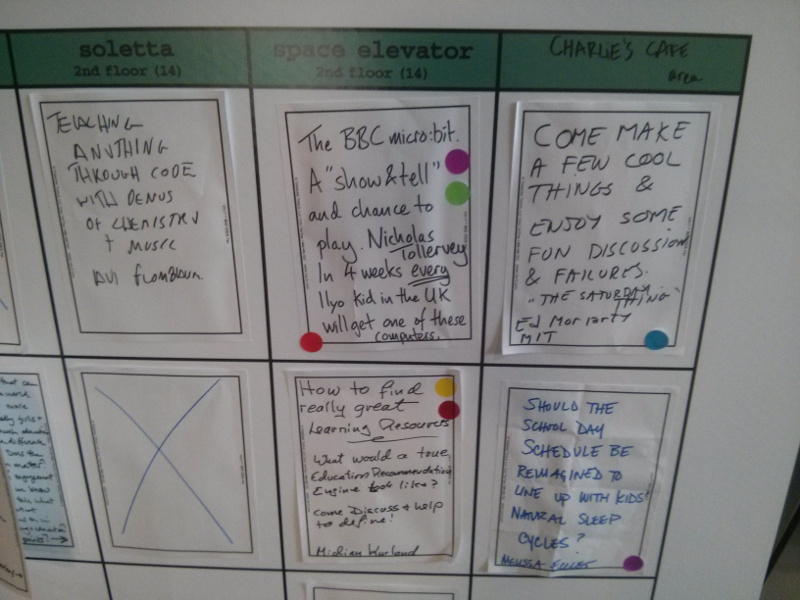 soletta
2nd floor (14)
space elevator
2nd floor (14)
CHARLIE'S CAFE
area
TEACHING
ANYTHING
THROUGH CODE
WITH DEMOS
OF CHEMISTRY
+ MUSIC
The BBC micro:bit.
A "show & tell"
and chance to
play. Nicholas
Tollervey
In 4 weeks every
11yo kid in the UK
will get one of these
computers.
COME MAKE
A FEW COOL
THINGS &
ENJOY SOME
FUN DISCUSSION
& FAILURES.
"THE SATURDAY
THING"
Ed Moriarty
MIT
How to find
really great
Learning Resources
What would a true
Education Recommendation
Engine look like?
Come Discuss + help
to define!
Midian Kurland
SHOULD THE
SCHOOL DAY
SCHEDULE BE
REIMAGINED TO
LINE UP WITH KIDS'
NATURAL SLEEP
CYCLES?
MELISSA